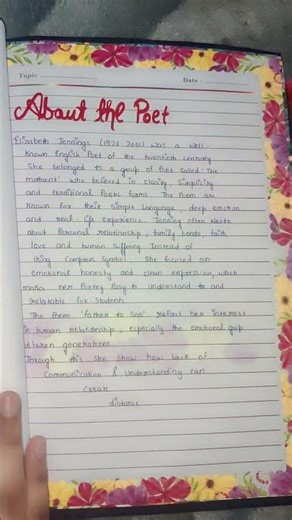 Topic ....................
Date : ....................
About the Poet
Elizabeth Jennings (1926 2001) was a well
Known English Poet of the twentieth Century
She belonged to a group of Poet Called 'The
moment' who believed in clarity, simplicity
and traditional Poetic forms. The Poem are
Known For their simple language, deep emotion
and real-life experience. Jenning often wrote
about Personal relationship, family bonds, faith
love and human suffering Instead of
Using Complex Symbol. She focused on
emotional honesty and clean expression, which
makes her Poetry Easy to understand to and
relatable for Students.
The Poem 'father to Son' reflect her interest
in human relationship, especially the emotional gap
between generations
Through this she show how lack of
Communication & Understanding can
create
distance